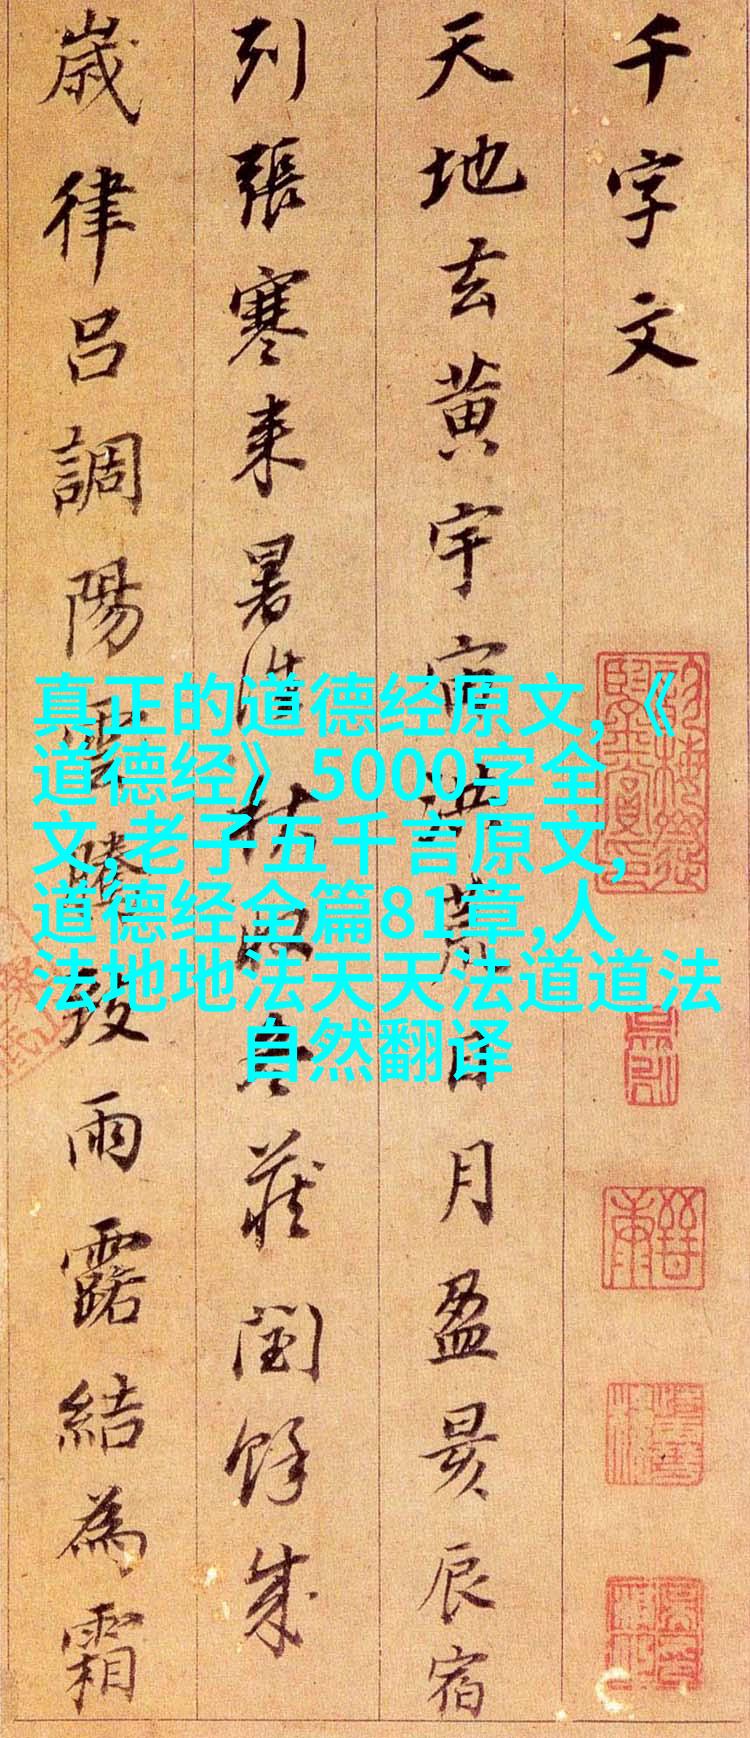 千字文
天地玄黄宇宙洪荒日月盈昃辰宿
列張寒来暑往秋收冬藏閏餘成
歲律吕調陽雲騰致雨露結為霜
真正的道德经原文,《
道德经》5000字全
文,老子五千言原文,
道德经全篇81章,人
法地地法天天法道道法
自然翻译